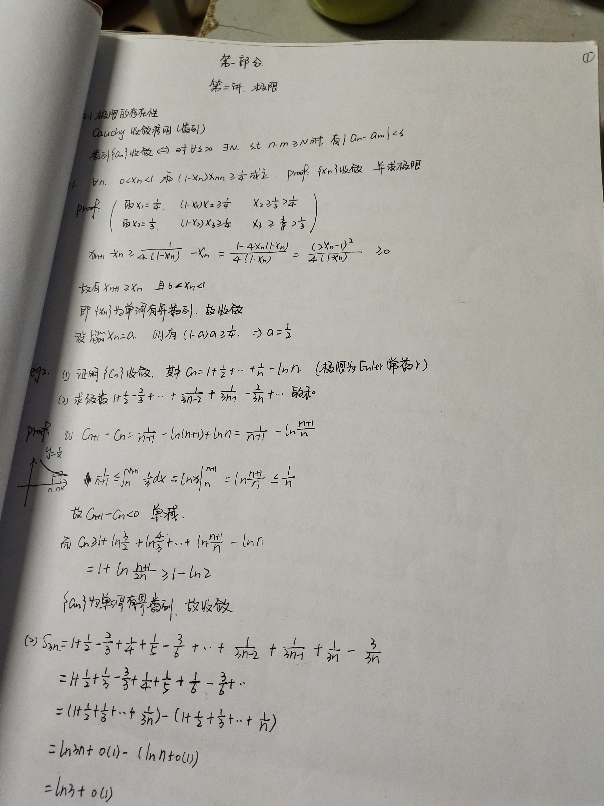 ①
第一部分
第二讲. 极限
极限的存在性
Cauchy 收敛准则 (数列)
数列{an}收敛 ⇔ 对 ∀ε>0 ∃N. s.t n.m≥N时 有|an-am|<ε
∀n. 0<xn<1 (1-xn)xn+1≥1/4 成立. proof {xn}收敛 并求极限
proof (取x1=1/4. (1-x1)x2≥1/4 x2≥1/3>1/4
取x2=1/3. (1-x2)x3≥1/4 x3≥3/8>1/3)
xn+1-xn≥1/(4(1-xn))-xn=(1-4xn(1-xn))/(4(1-xn))=(2xn-1)²/(4(1-xn))≥0
故有xn+1≥xn 且0<xn<1
即{xn}为单调有界数列. 故收敛
设lim xn=a. 则有(1-a)a≥1/4. ⇒a=1/2
eg2. (1) 证明{Cn}收敛. 其中Cn=1+1/2+…+1/n-ln n. (极限为Euler常数γ)
(2) 求级数1+1/2-2/3+…+1/(3n-2)+1/(3n-1)-2/3n+… 的和
proof (1) Cn+1-Cn=1/(n+1)-ln(n+1)+ln n=1/(n+1)-ln (n+1)/n
y=1/x
n n+1
1/(n+1)≤∫n^(n+1) 1/x dx=ln x|n^(n+1)=ln (n+1)/n≤1/n
故Cn+1-Cn<0 单减.
而Cn≥1+ln 3/2+ln 4/3+…+ln (n+1)/n-ln n
=1+ln (n+1)/2n≥1-ln2
{an}为单调有界数列. 故收敛
(2) S3n=1+1/2-2/3+1/4+1/5-3/6+…+1/(3n-2)+1/(3n-1)+1/3n-3/3n
=1+1/2+1/3-3/3+1/4+1/5+1/6-3/6+…
=(1+1/2+1/3+…+1/3n)-(1+1/2+1/3+…+1/n)
=ln3n+o(1)-(ln n+o(1))
=ln3+o(1)